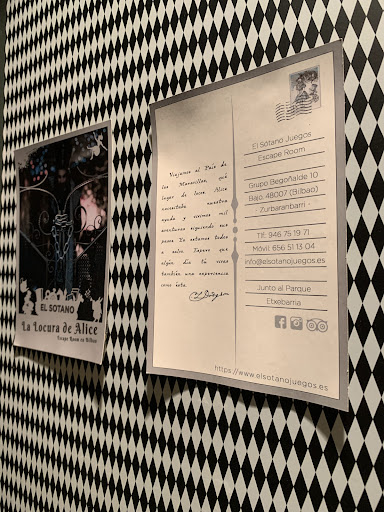 EL SOTANO
La Locura de Alice
Escape Room en Bilbao
Viajamos al País de
las Maravillas, qué
lugar de locos. Alice
necesitaba nuestra
ayuda y vivimos mil
aventuras siguiendo sus
pasos. La estamos todos
a salvo. Espero que
algún día tú vivas
también una experiencia
como ésta.
El Sótano Juegos
Escape Room
Grupo Begoñalde 10
Bajo 48007 (Bilbao)
- Zurbaranbarri -
Tlf: 946 75 19 71
Móvil: 656 51 13 04
info@elsotanojuegos.es
Junto al Parque
Etxebarria
https://www.elsotanojuegos.es